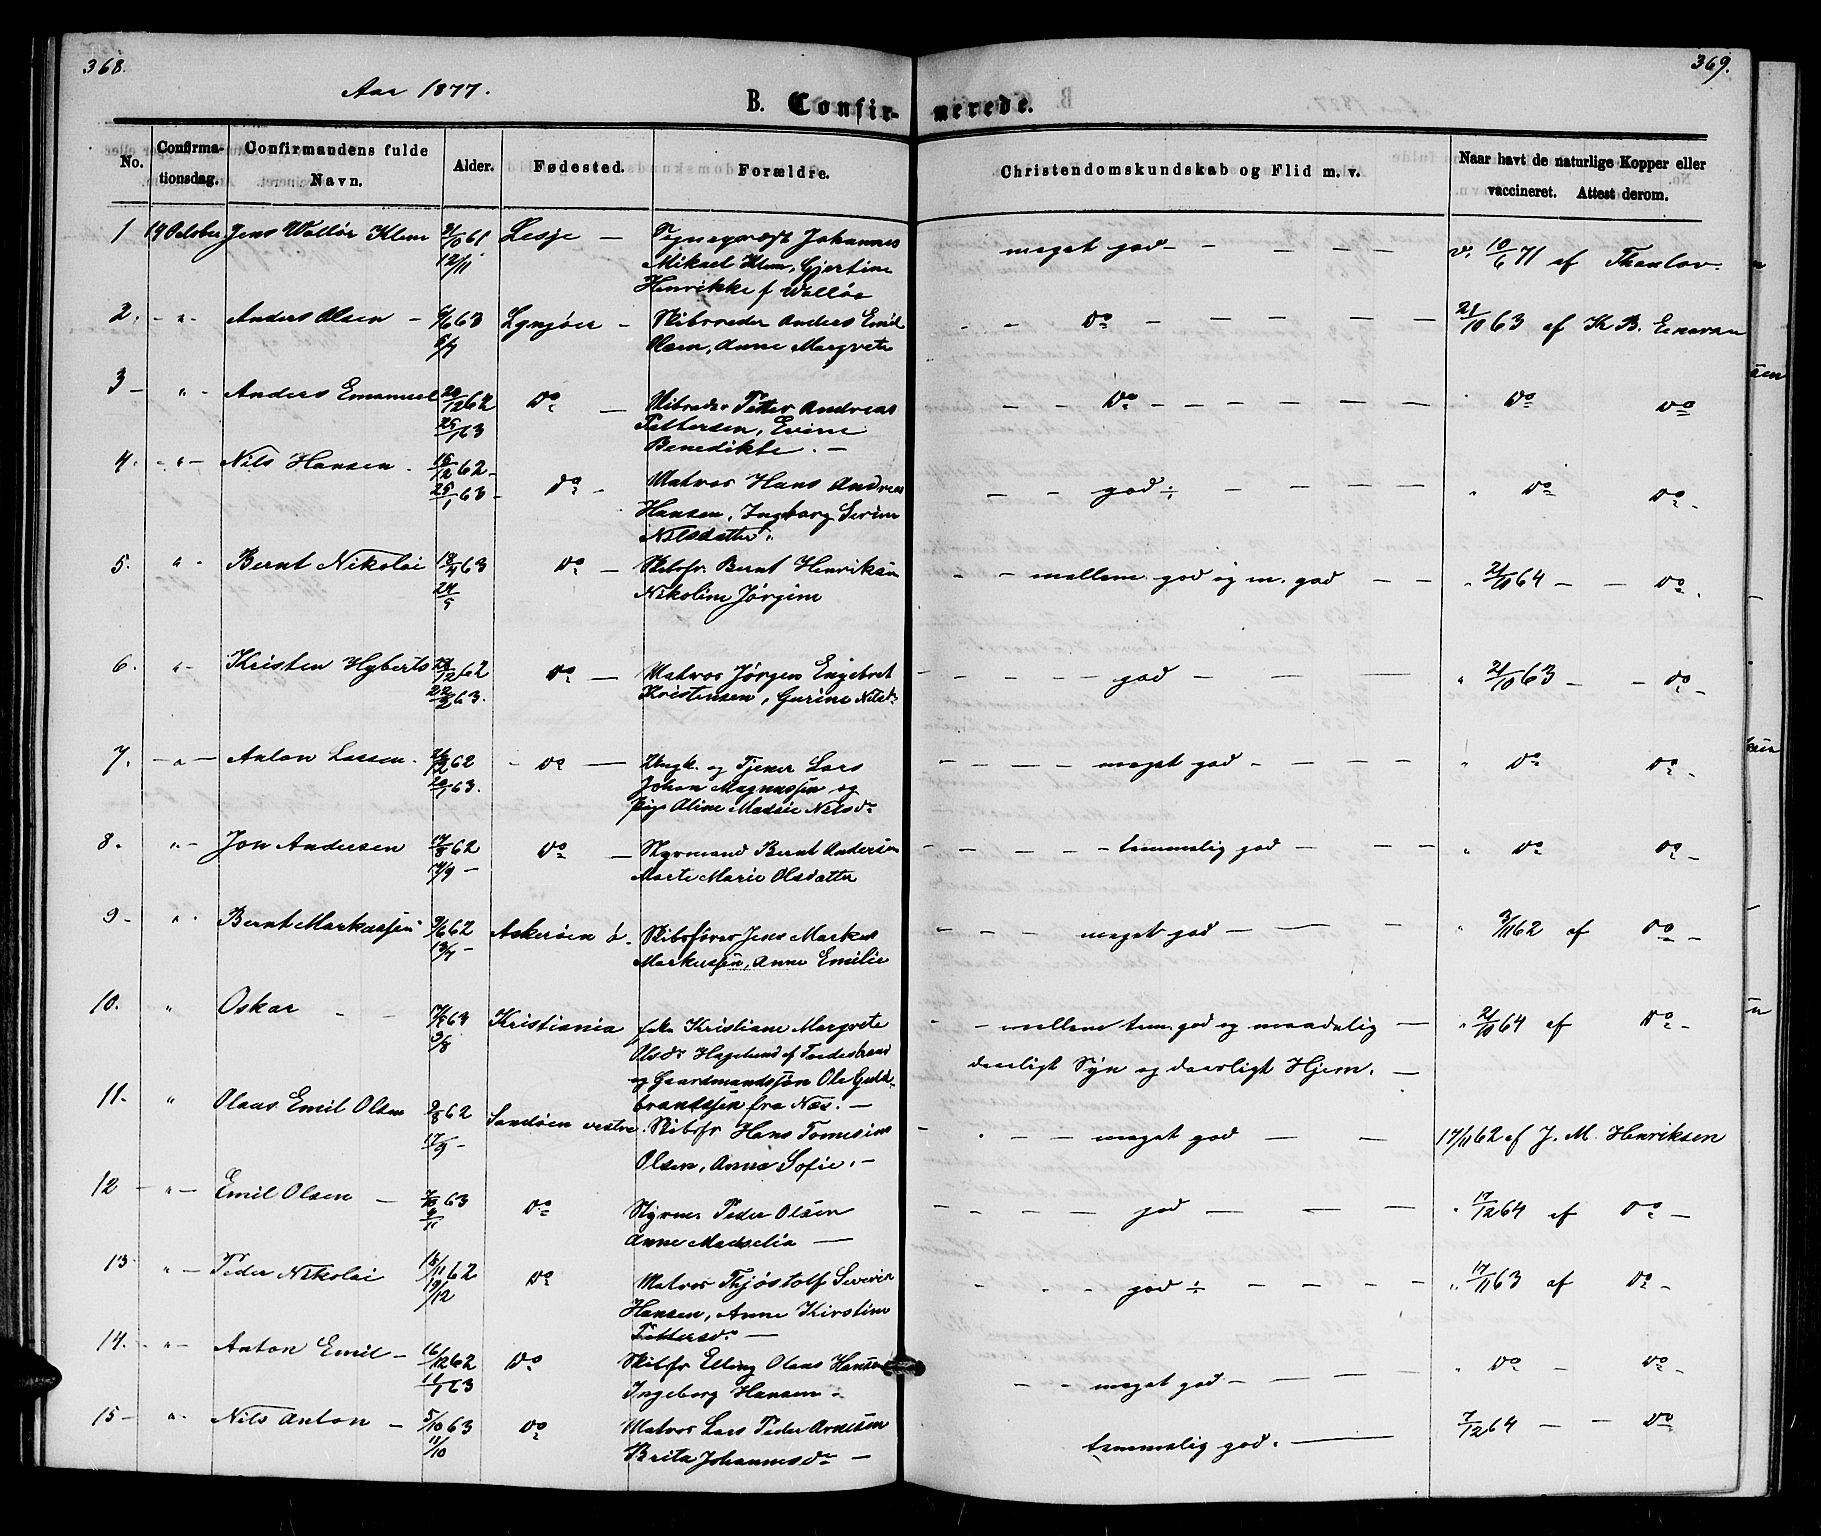 368.
369.
Aar 1877.
B. Confir-
merede.
No.
Confirma-
tionsdag.
Confirmandens fulde
Navn.
Alder.
Fødested.
Forældre.
Christendomskundskab og Flid m. v.
Naar havt de naturlige Kopper eller
vaccineret. Attest derom.
1 14 October Jens Walløe Klem 21/10 61 Lesje —
12/11
Johannes
Mikael Klem, Gjertine
Henrikke f Walløe
meget god — — — —
v. 10/6 71 af Thaulov.
2. - „ - Anders Olsen - 6/6 63 Lyngøer -
Skibsreder Anders Emil
Olsen, Anne Margrete
- - Do — — — — —
21/10 63 af K B.
3 - „ - Anders Emanuel 20/12 62 Do —
25/1 63
Skibsreder Petter Andreas
Pettersen, Evine
Benedikte. —
— — Do — — — — — —
Do Do
4. - „ - Nils Hansen. 15/12 62 -
25/1 63 - Do -
Matros Hans Andreas
Hansen, Ingborg Serine
Nilsdatter.
— — god ÷ — — — — —
„ Do Do -
5. „ - Bernt Nikolai 13/4 63 Do —
24/5
Skibsfr. Bernt Henriksen
Nikoline Jørgine
- - mellem god og m. god — —
„ 21/11 64 — — Do.
6. „ - Kristen Hyberts 12 62 Do —
22/2 63.
Matros Jørgen Engebret
Kristensen, Gurine Nilsd.
— — — — — god — — —
„ 21/10 63 - - Do -
7. — „ — Anton Lassen. 12 62 - Do —
63.
Ungk. og Tjener Lars
Johan Magnussen og
Pige Oline Madsie Nilsdr
— — — — meget god — — — —
„ Do Do -
8. „ - Jon Andersen 17/8 62 Do —
14/9 —
Styrmand Bernt Andersen
Marte Marie Olsdatter
— — — — - temmelig god — — —
„ Do Do -
9 - „ - Bernt Markussen 9/6 62 Askerøen ø.
13/7
Skibsfører Jens Markus
Markussen, Anne Emilie
— — — meget god — — — —
„ 3/11 62 af Do -
10. „ Oskar - - 63 Kristiania
3/8
Kristiane Margrete
Olsdr Hagelund af
og Gaardmandssøn Ole Guld-
brandssen fra Næs. —
- - mellem tem. god og maadelig —
daarligt Syn og daarligt Hjem. —
„ 21/10 64 af Do -
11. „ Olaus Emil Olsen 9/8 62 Sandøen vestre.
17/9 -
Skibsfr Hans Tomesius
Olsen, Anna Sofie. —
- - - meget god — —
17/11 62 af J. M. Henriksen
12 - „ - Emil Olsen - 7/10 63 Do
9/11
Styrm. Peder Olsen
Anne Madselia —
- - - - god — — — —
„ 17/12 64 af Do —
13. „ - Peder Nikolai 16/11 62 Do
19/12
Matros Thjøstolf Severin
Hansen, Anne Kirstine
Pettersdr —
- - - god ÷ — — — —
„ 17/11 63 af Do -
14. - „ - Anton Emil - 16/12 62 Do
11/1 63
Skibsfr Elling Olaus Hansen
Ingeborg Hansen -
- - meget god — — — —
„ Do - Do -
15 - „ - Nils Anton - 5/10 63 Do
11/10
Matros Lars Peder Arnesen
Brita Johannesdr —
temmelig god. ———
7/12 64 — - Do